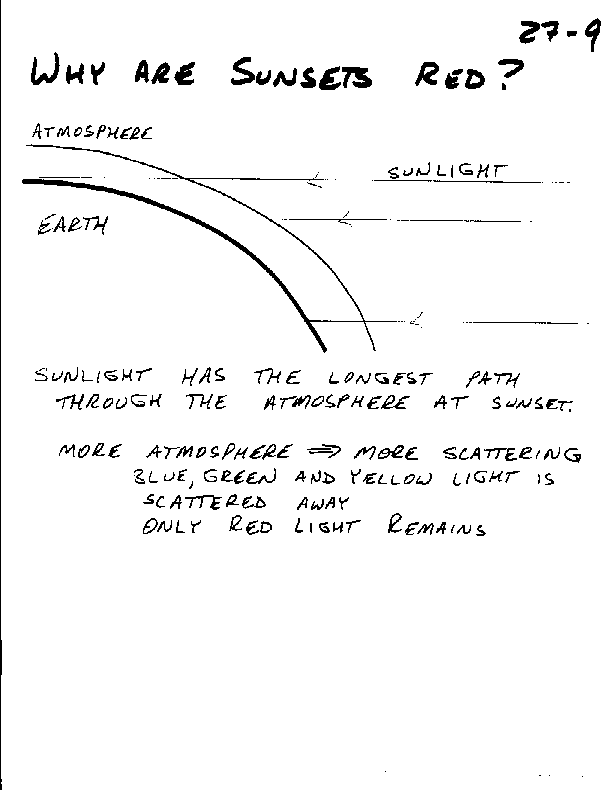 27-9
WHY ARE SUNSETS RED?
ATMOSPHERE
SUNLIGHT
EARTH
SUNLIGHT HAS THE LONGEST PATH
THROUGH THE ATMOSPHERE AT SUNSET.
MORE ATMOSPHERE ⇒ MORE SCATTERING
BLUE, GREEN AND YELLOW LIGHT IS
SCATTERED AWAY
ONLY RED LIGHT REMAINS